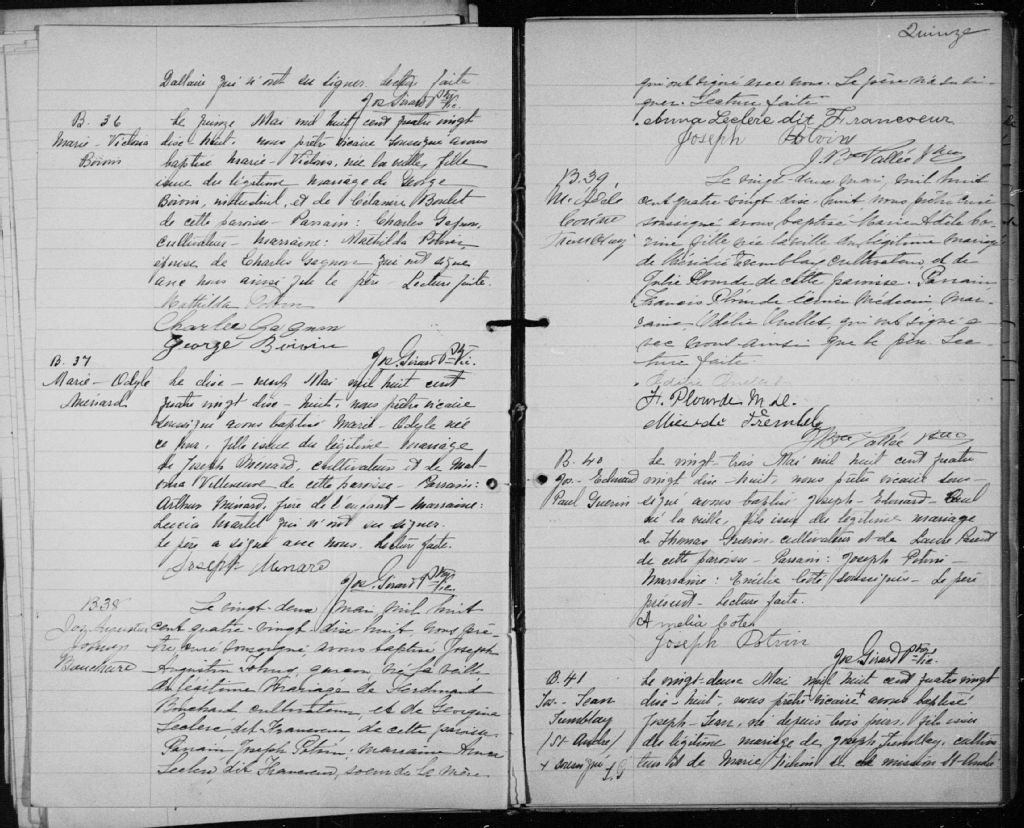 Dallaire qui n'ont su signer. Lecture faite
Jos. Girard Ptre Vic.
B. 36
Marie-Victoria
Boivin
Le quinze Mai mil huit cent quatre vingt
dix-huit, nous prêtre vicaire soussigné avons
baptisé Marie-Victoria, née la veille, fille
issue du légitime mariage de George
Boivin, industriel, et de Boulet
de cette paroisse - Parrain: Charles Gagnon,
cultivateur - Marraine: Mathilda Potvin,
épouse de Charles Gagnon qui ont signé
avec nous ainsi que le père - Lecture faite.
Mathilda Potvin
Charles Gagnon
George Boivin
Jos. Girard Ptre Vic.
B. 37
Marie-Odyle
Menard
Le dix-neuf Mai mil huit cent
quatre vingt dix-huit, nous prêtre vicaire
soussigné avons baptisé Marie-Odyle née
ce jour, fille issue du légitime mariage
de Joseph Menard, cultivateur et de
Villeneuve de cette paroisse - Parrain:
Arthur Ménard, frère de l'enfant - Marraine:
Lucia Martel qui n'ont su signer.
Le père a signé avec nous. Lecture faite.
Joseph Menard
Jos. Girard Ptre Vic.
B 38
Jos Augustin
Bouchard
Le vingt-deux mai mil huit
cent quatre-vingt dix-huit nous prê-
tre curé soussigné avons baptisé Joseph
Augustin garçon né la veille
du légitime Mariage de Ferdinand
Bouchard cultivateur, et de Georgina
Leclerc dit Francoeur de cette paroisse
Parrain Joseph Potvin, marraine Anna
Leclerc dit Francoeur, soeur de la mère
Quinze
qui ont signé avec nous. Le père n'a su si-
gner. Lecture faite
Anna Leclerc dit Francoeur
Joseph Potvin
J. Bte Vallée Ptre
B. 39
M. Adèle
Le vingt-deux mai, mil huit
cent quatre-vingt dix-huit nous prêtre curé
soussigné avons baptisé Marie Adèle
fille née la veille du légitime mariage
de Méridé Tremblay cultivateur, et de
Julie Plourde de cette paroisse. Parrain
Francis Plourde Médecin Mar-
raine Odélie Ouellet qui ont signé a-
vec nous ainsi que le père. Lec-
ture faite
F. Plourde M.D.
Tremblay
J Bte Vallée Ptre
B. 40
Jos.-Edmond
Paul Guerin
Le vingt-trois Mai mil huit cent quatre
vingt dix-huit, nous prêtre vicaire sous-
signé avons baptisé Joseph-Edmond-Paul
né la veille, fils issu du légitime mariage
de Thomas Guerin cultivateur et de Laure
de cette paroisse - Parrain: Joseph Potvin -
Marraine: Emélie Coté soussignés - Le père
présent - Lecture faite.
Amelia Coté
Joseph Potvin
Jos. Girard Ptre Vic.
B. 41
Jos.-Jean
Tremblay
(St André)
+ soussigné J. G
Le vingt-deux Mai mil huit cent quatre vingt
dix-huit, nous prêtre vicaire + avons baptisé
Joseph-Jean, né depuis trois jours, fils issu
du légitime mariage de Joseph Tremblay, cultiva-
teur et de Marie de la mission St-André